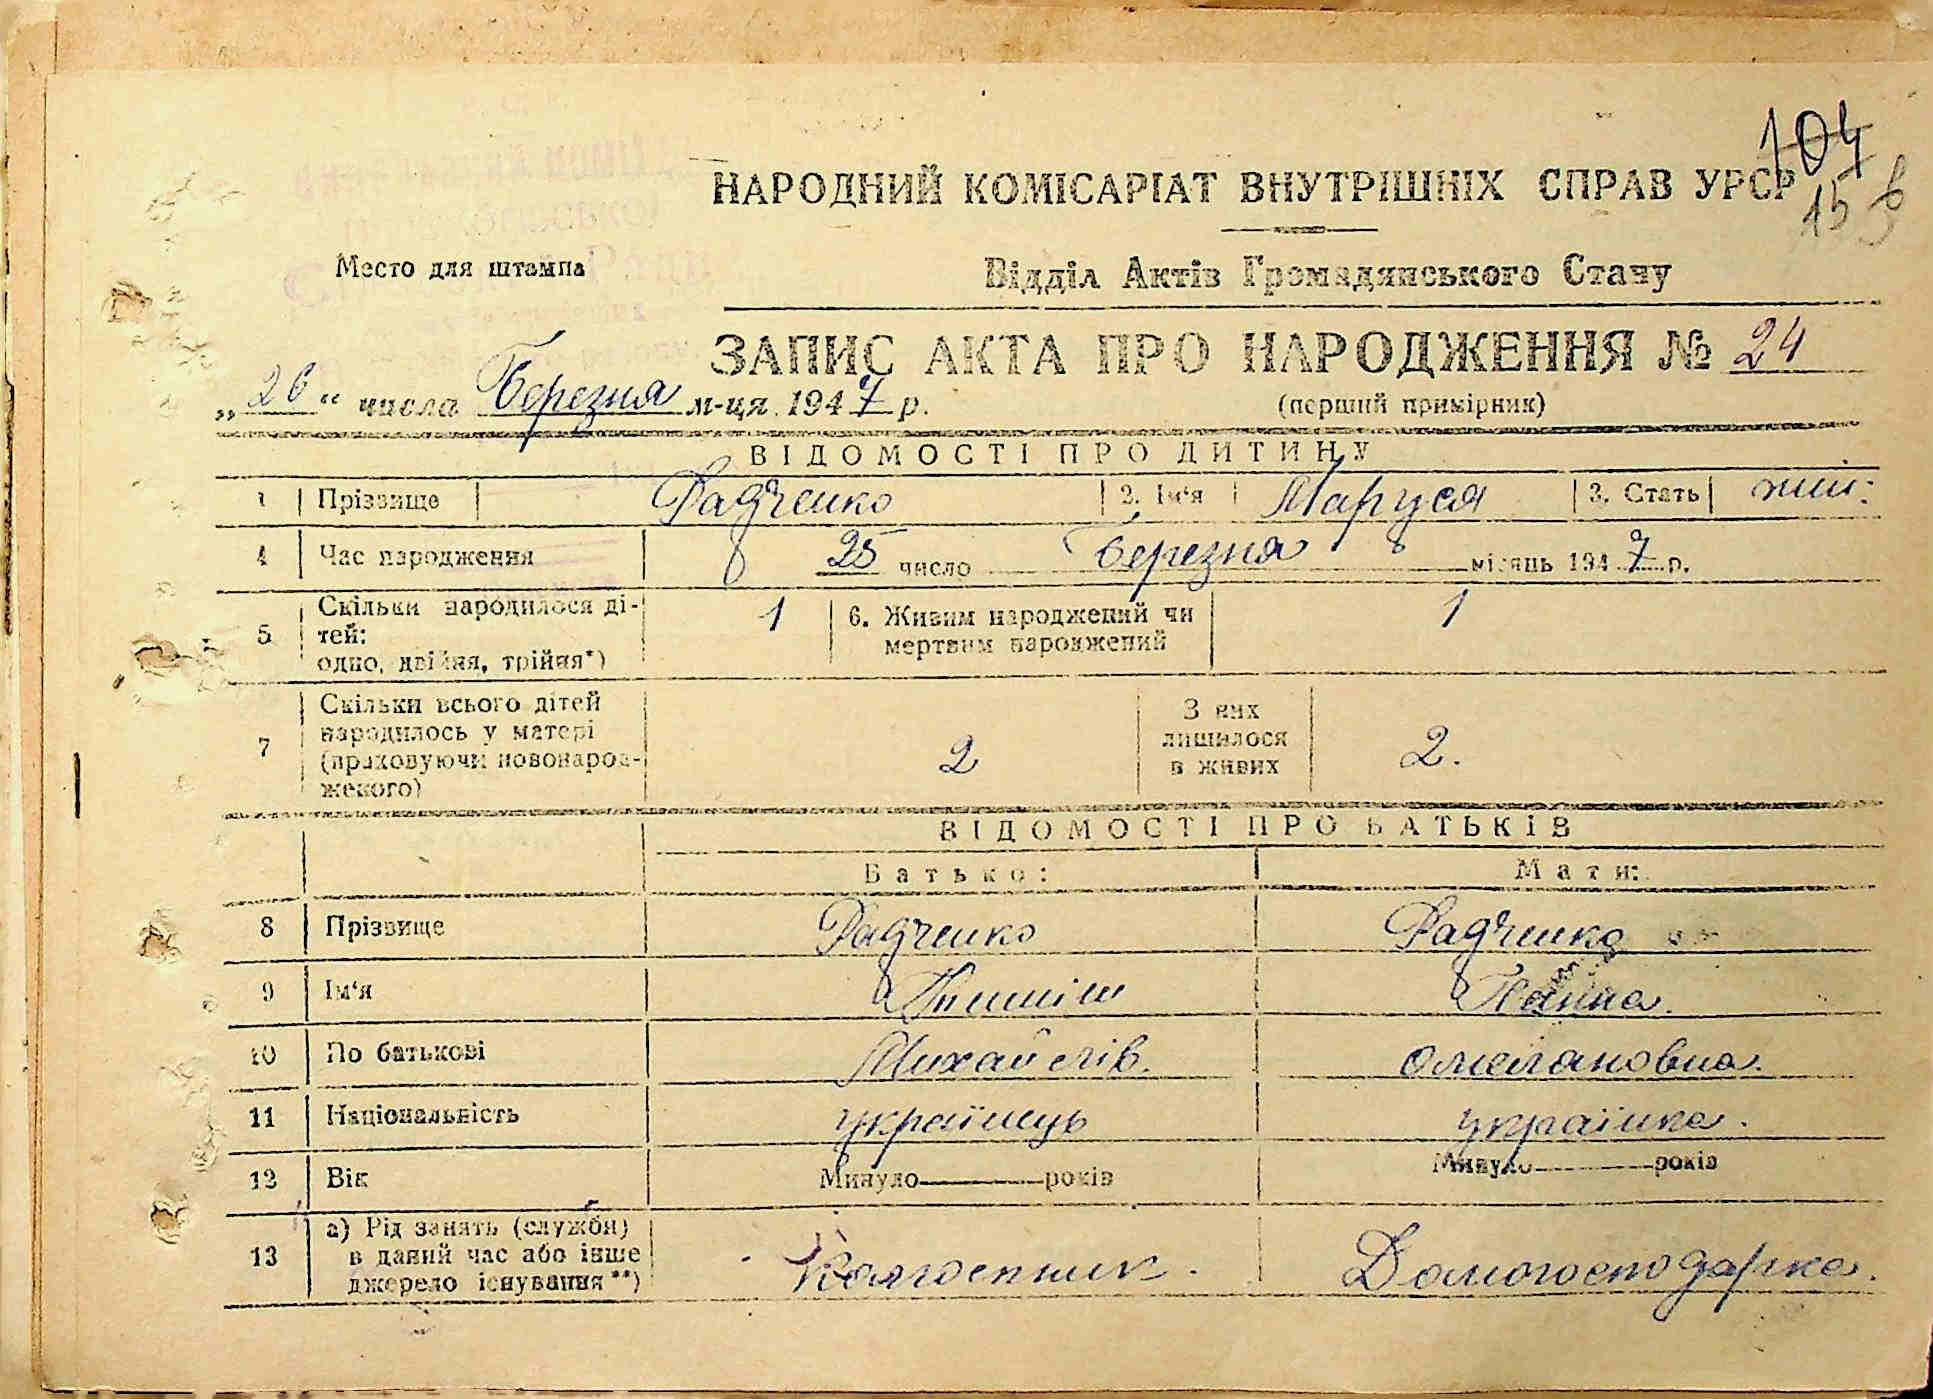 104
15
НАРОДНИЙ КОМІСАРІАТ ВНУТРІШНІХ СПРАВ УРСР
Место для штампа
Відділ Актів Громадянського Стану
ЗАПИС АКТА ПРО НАРОДЖЕННЯ № 24
„26“ числа Березня м-ця 1947 р.
(перший примірник)
ВІДОМОСТІ ПРО ДИТИНУ
1 Прізвище Радченко 2. Ім‘я Маруся 3. Стать жін:
4 Час народження 25 число Березня місяць 1947 р.
5 Скільки народилося ді-
тей:
одно, двійня, трійня*) 1
6. Живим народжений чи
мертвим народжений 1
7 Скільки всього дітей
народилось у матері
(враховуючи новонарод-
женого) 2
З них
лишилося
в живих 2.
ВІДОМОСТІ ПРО БАТЬКІВ
Батько: Мати:
8 Прізвище Радченко Радченко
9 Ім‘я Ганна.
10 По батькові Михайлів. Омеляновна.
11 Національність українець українка.
12 Вік Минуло років Минуло років
13 а) Рід занять (служби)
в даний час або інше
джерело існування**) Колгоспник. Домогосподарка.